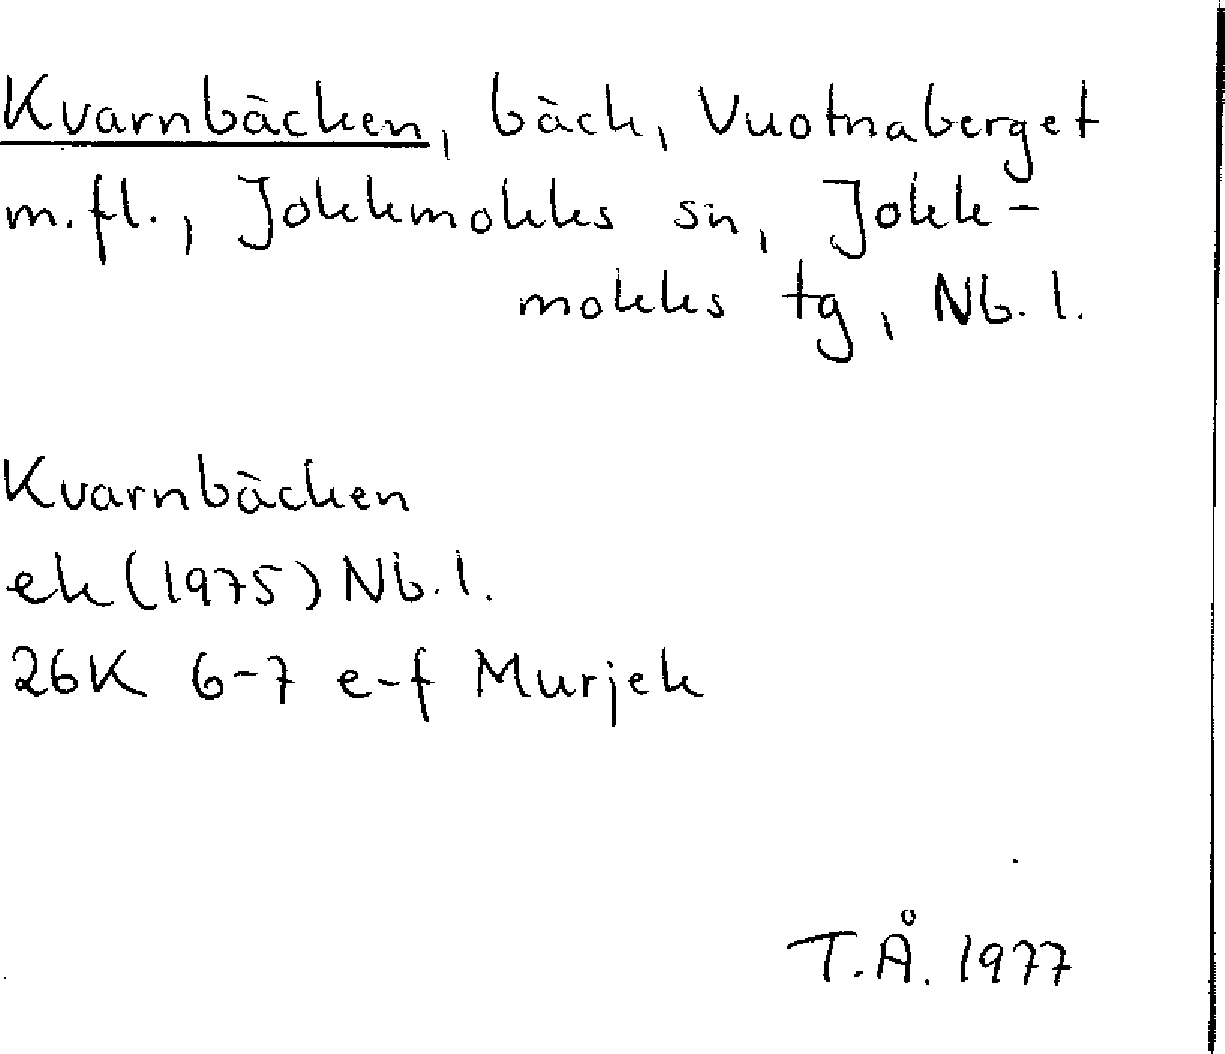 Kvarnbäcken, bäck, Vuotnaberget
m.fl., Jokkmokks sn, Jokk-
mokks tg, Nb. l.
Kvarnbäcken
ek (1975) Nb. l.
26K 6-7 e-f Murjek
T.Å. 1977